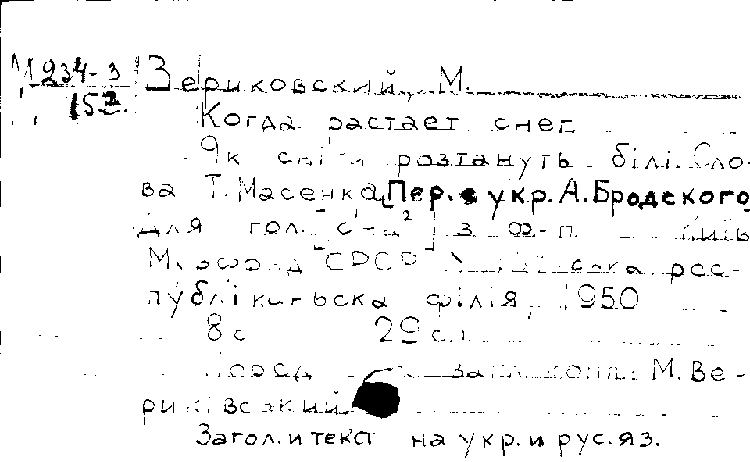 М 234-3
152
Зериковский, М.
Когда растает снег
Як сніги розтануть білі. Сло-
ва Т. Масенка. Пер. с укр. А. Бродского
для гол. з ф-п. Київ
Музфонд СРСР рес-
публіканська філія, 1950
8 с 29 см
запл. комп. М. Ве-
риківський
Загол. и текст на укр. и рус. яз.